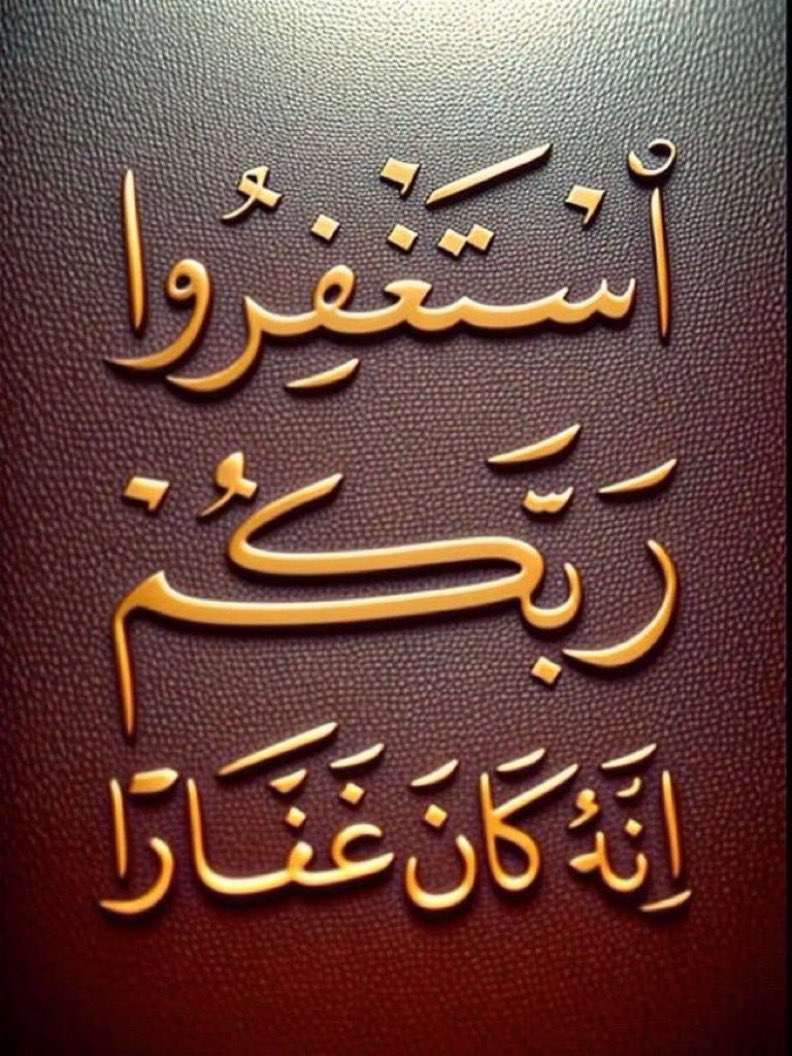 أسْتَغْفِرُوا
رَبَّكُمْ
اِنَّهُ كَانَ غَفَّارًا